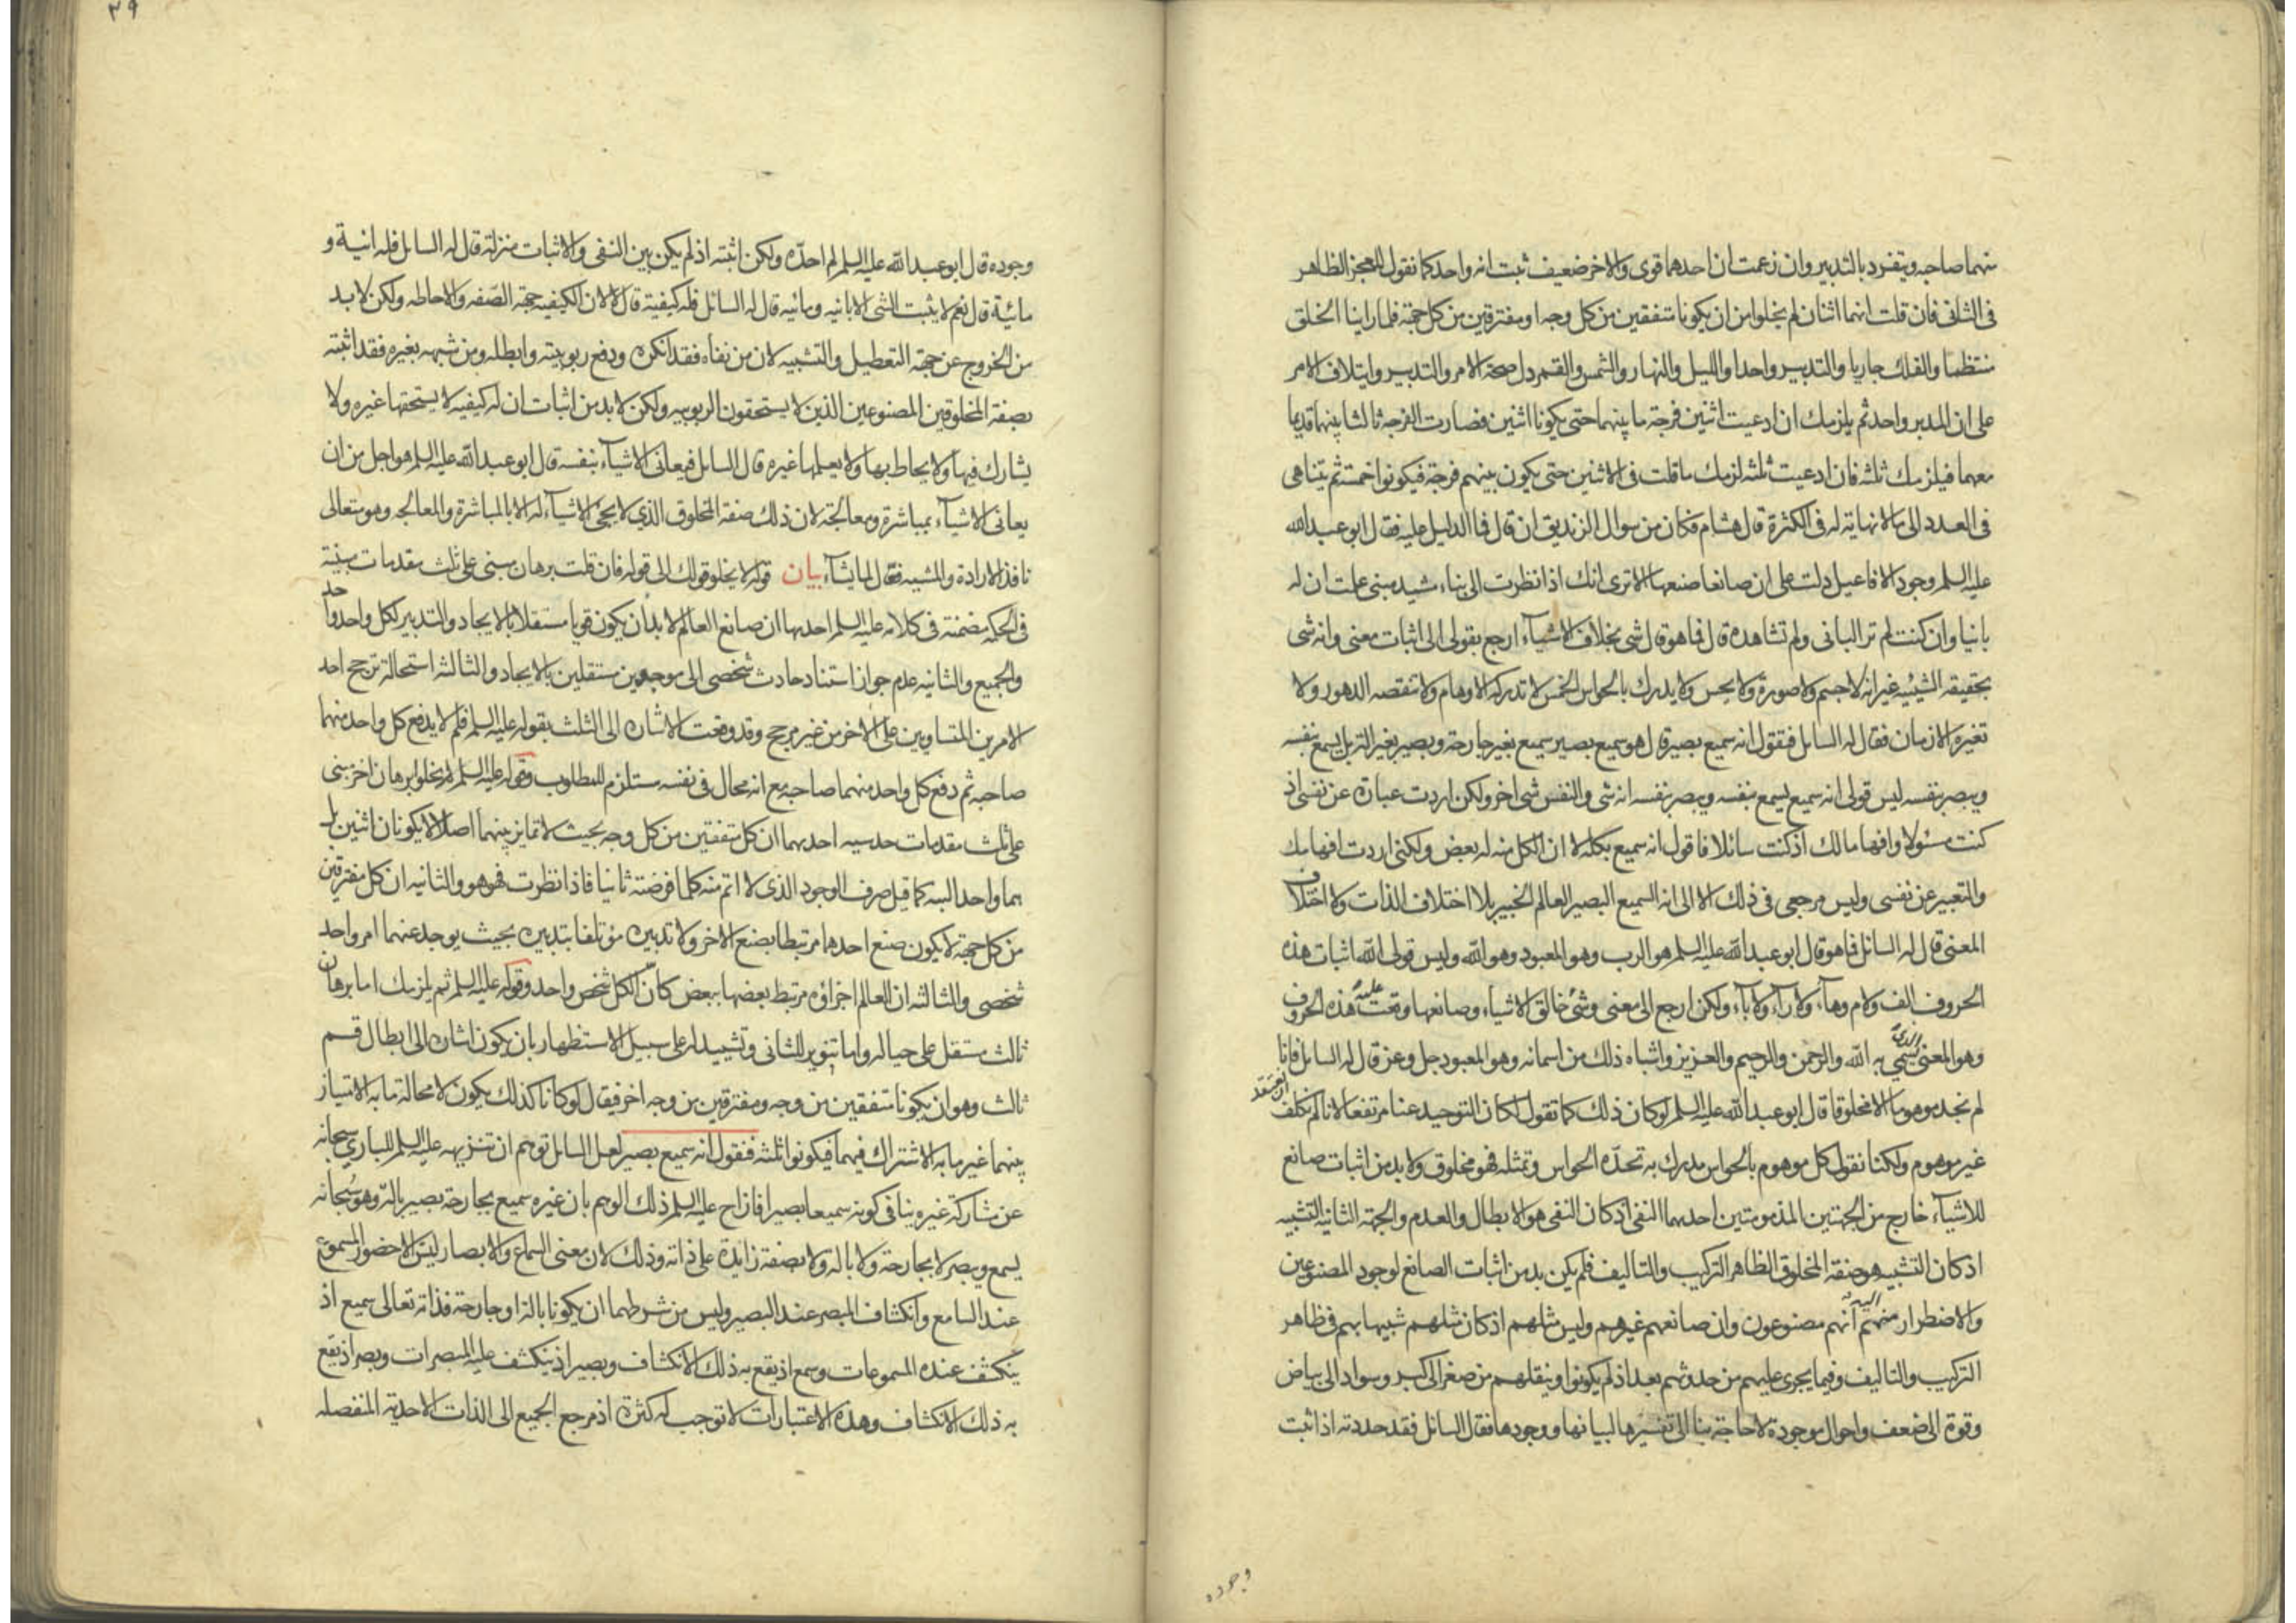 منهما صاحبه ويتفرد بالتدبير وان زعمت ان احدهما قوى والاخر ضعيف ثبت انه واحد كما نقول للعجز الظاهر
فى الثانى فان قلت انهما اثنان لم يخلوا من ان يكونا متفقين من كل وجه او مفترقين من كل جهة فلما راينا الخلق
منتظما والفلك جاريا والتدبير واحدا والليل والنهار والشمس والقمر دل صحة الامر والتدبير وايتلاف الامر
على ان المدبر واحد ثم يلزمك ان ادعيت اثنين فرجة ما بينهما حتى يكونا اثنين فصارت الفرجة ثالثا بينهما قديما
معهما فيلزمك ثلثه فان ادعيت ثلثه لزمك ما قلت فى الاثنين حتى يكون بينهم فرجة فيكونوا خمسة ثم يتناهى
فى العدد الى ما لا نهاية له فى الكثرة قال هشام فكان من سوال الزنديق ان قال فما الدليل عليه فقال ابو عبد الله
عليه السلم وجود الافاعيل دلت على ان صانعا صنعها الا ترى انك اذا نظرت الى بناء مشيد مبنى علمت ان له
بانيا وان كنت لم تر البانى ولم تشاهده قال فما هو قال شى بخلاف الاشياء ارجع بقولى الى اثبات معنى وانه شى
بحقيقه الشيئيه غير انه لا جسم ولا صورة ولا يحس ولا يدرك بالحواس الخمس لا تدركه الاوهام ولا تنقصه الدهور ولا
تغيره الازمان فقال له السايل فتقول انه سميع بصير قال هو سميع بصير سميع بغير جارحة وبصير بغير الة بل يسمع بنفسه
ويبصر بنفسه ليس قولى انه سميع يسمع بنفسه ويبصر بنفسه انه شى والنفس شى اخر ولكن اردت عبارة عن نفسى اذ
كنت مسئولا وافهاما لك اذ كنت سائلا فاقول انه سميع بكله لا ان الكل منه له بعض ولكنى اردت افهامك
والتعبير عن نفسى وليس مرجعى فى ذلك الا الى انه السميع البصير العالم الخبير بلا اختلاف الذات ولا اختلاف
المعنى قال له السائل فما هو قال ابو عبد الله عليه السلم هو الرب وهو المعبود وهو الله وليس قولى الله اثبات هذه
الحروف الف ولام وهاء ولا راء ولا باء ولكن ارجع الى معنى وشئ خالق الاشياء وصانعها وقعت عليه هذه الحروف
وهو المعنى الذى يسمى به الله والرحمن والرحيم والعزيز واشباه ذلك من اسمائه وهو المعبود جل وعز قال له السايل فانا
لم نجد موهوما الا مخلوقا قال ابو عبد الله عليه السلم لو كان ذلك كما تقول لكان التوحيد عنا مرتفعا لانا لم نكلف ان نعتقد
غير موهوم ولكنا نقول كل موهوم بالحواس مدرك به تحده الحواس وتمثله فهو مخلوق ولا بد من اثبات صانع
للاشياء خارج من الجهتين المذمومتين احدهما النفى اذ كان النفى هو الابطال والعدم والجهة الثانية التشبيه
اذ كان التشبيه هو صفة المخلوق الظاهر التركيب والتاليف فلم يكن بد من اثبات الصانع لوجود المصنوعين
والاضطرار منهم اليه انهم مصنوعون وان صانعهم غيرهم وليس مثلهم اذ كان مثلهم شبيها بهم فى ظاهر
التركيب والتاليف وفيما يجرى عليهم من حدوثهم بعد اذ لم يكونوا وينقلهم من صغر الى كبر وسواد الى بياض
وقوة الى ضعف واحوال موجودة لا حاجة بنا الى تفسيرها لبيانها ووجودها فقال السائل فقد حددته اذ اثبت
وجوده
٣٩
وجوده قال ابو عبد الله عليه السلم لم احده ولكن اثبته اذ لم يكن بين النفى والاثبات منزلة قال له السايل فله انية و
مائية قال نعم لا يثبت الشى الا بانيه ومائيه قال له السائل فله كيفية قال لا لان الكيفيه جهة الصفه والاحاطه ولكن لا بد
من الخروج عن جهة التعطيل والتشبيه لان من نفاه فقد انكره ودفع ربوبيته وابطله ومن شبهه بغيره فقد اثبته
بصفة المخلوقين المصنوعين الذين لا يستحقون الربوبيه ولكن لا بد من اثبات ان له كيفيه لا يستحقها غيره ولا
يشارك فيها ولا يحاط بها ولا يعلمها غيره قال السائل فيعانى الاشياء بنفسه قال ابو عبد الله عليه السلم هو اجل من ان
يعانى الاشياء بمباشرة ومعالجة لان ذلك صفة المخلوق الذي لا يجئ الاشياء له الا بالمباشرة والمعالجه وهو متعالى
نافذ الارادة والمشيه فعال لما يشاء بيان قوله لا يخلو قولك الى قوله فان قلت برهان مبنى على ثلث مقدمات مبينة
فى الحكمة مضمنة فى كلامه عليه السلم احديها ان صانع العالم لا بد ان يكون قويا مستقلا بالايجاد والتدبير لكل واحد واحد
والجميع والثانيه عدم جواز استناد حادث شخصى الى موجدين مستقلين بالايجاد والثالثه استحالة ترجح احد
الامرين المتساويين على الاخر من غير مرجح وقد وقعت الاشارة الى الثلث بقوله عليه السلم فلم لا يدفع كل واحد منهما
صاحبه ثم دفع كل واحد منهما صاحبه مع انه محال فى نفسه مستلزم للمطلوب وقوله عليه السلم لم يخلوا برهان اخر مبنى
على ثلث مقدمات حدسيه احديهما ان كل متفقين من كل وجه بحيث لا تمايز بينهما اصلا لا يكونان اثنين بل
هما واحد البته كما قيل صرف الوجود الذى لا اتم منه كلما فرضته ثانيا فاذا نظرت فهو هو والثانيه ان كل مفترقين
من كل جهة لا يكون صنع احدهما مرتبطا بصنع الاخر ولا تدبيره مؤتلفا بتدبيره بحيث يوجد عنهما امر واحد
شخصى والثالثه ان العالم اجزاؤه مرتبط بعضها ببعض كان الكل شخص واحد وقوله عليه السلم ثم يلزمك اما برهان
ثالث مستقل على حياله واما تنوير للثانى وتشييد له على سبيل الاستظهار بان يكون اشارة الى ابطال قسم
ثالث وهو ان يكونا متفقين من وجه ومفترقين من وجه اخر فيقال لو كانا كذلك يكون لا محالة ما به الامتياز
بينهما غير ما به الاشتراك فيهما فيكونوا ثلثه فتقول انه سميع بصير لعل السايل توهم ان تنزيهه عليه السلم للباري سبحانه
عن مشاركة غيره ينافى كونه سميعا بصيرا فازاح عليه السلم ذلك الوهم بان غيره سميع بجارحة بصير بالة وهو سبحانه
يسمع ويبصر لا بجارحة ولا بالة ولا بصفة زايدة على ذاته وذلك لان معنى السماع والابصار ليس الا حضور المسموع
عند السامع وانكشاف المبصر عند البصير وليس من شرطهما ان يكونا بالة او جارحة فذاته تعالى سميع اذ
ينكشف عنده المسموعات وسمع اذ يقع به ذلك الانكشاف وبصير اذ ينكشف عليه المبصرات وبصر اذ يقع
به ذلك الانكشاف وهذه الاعتبارات لا توجب له كثرة اذ مرجع الجميع الى الذات الاحدية المنفصله